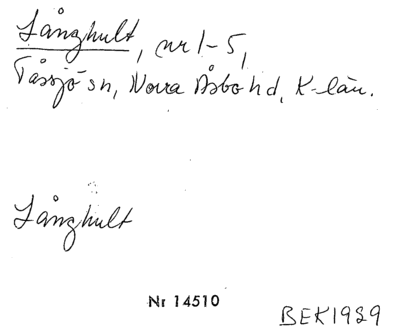 Långhult, nr 1-5,
Tåssjö sn, Norra Åsbo hd, K-län.
Långhult
Nr 14510
BEK1929